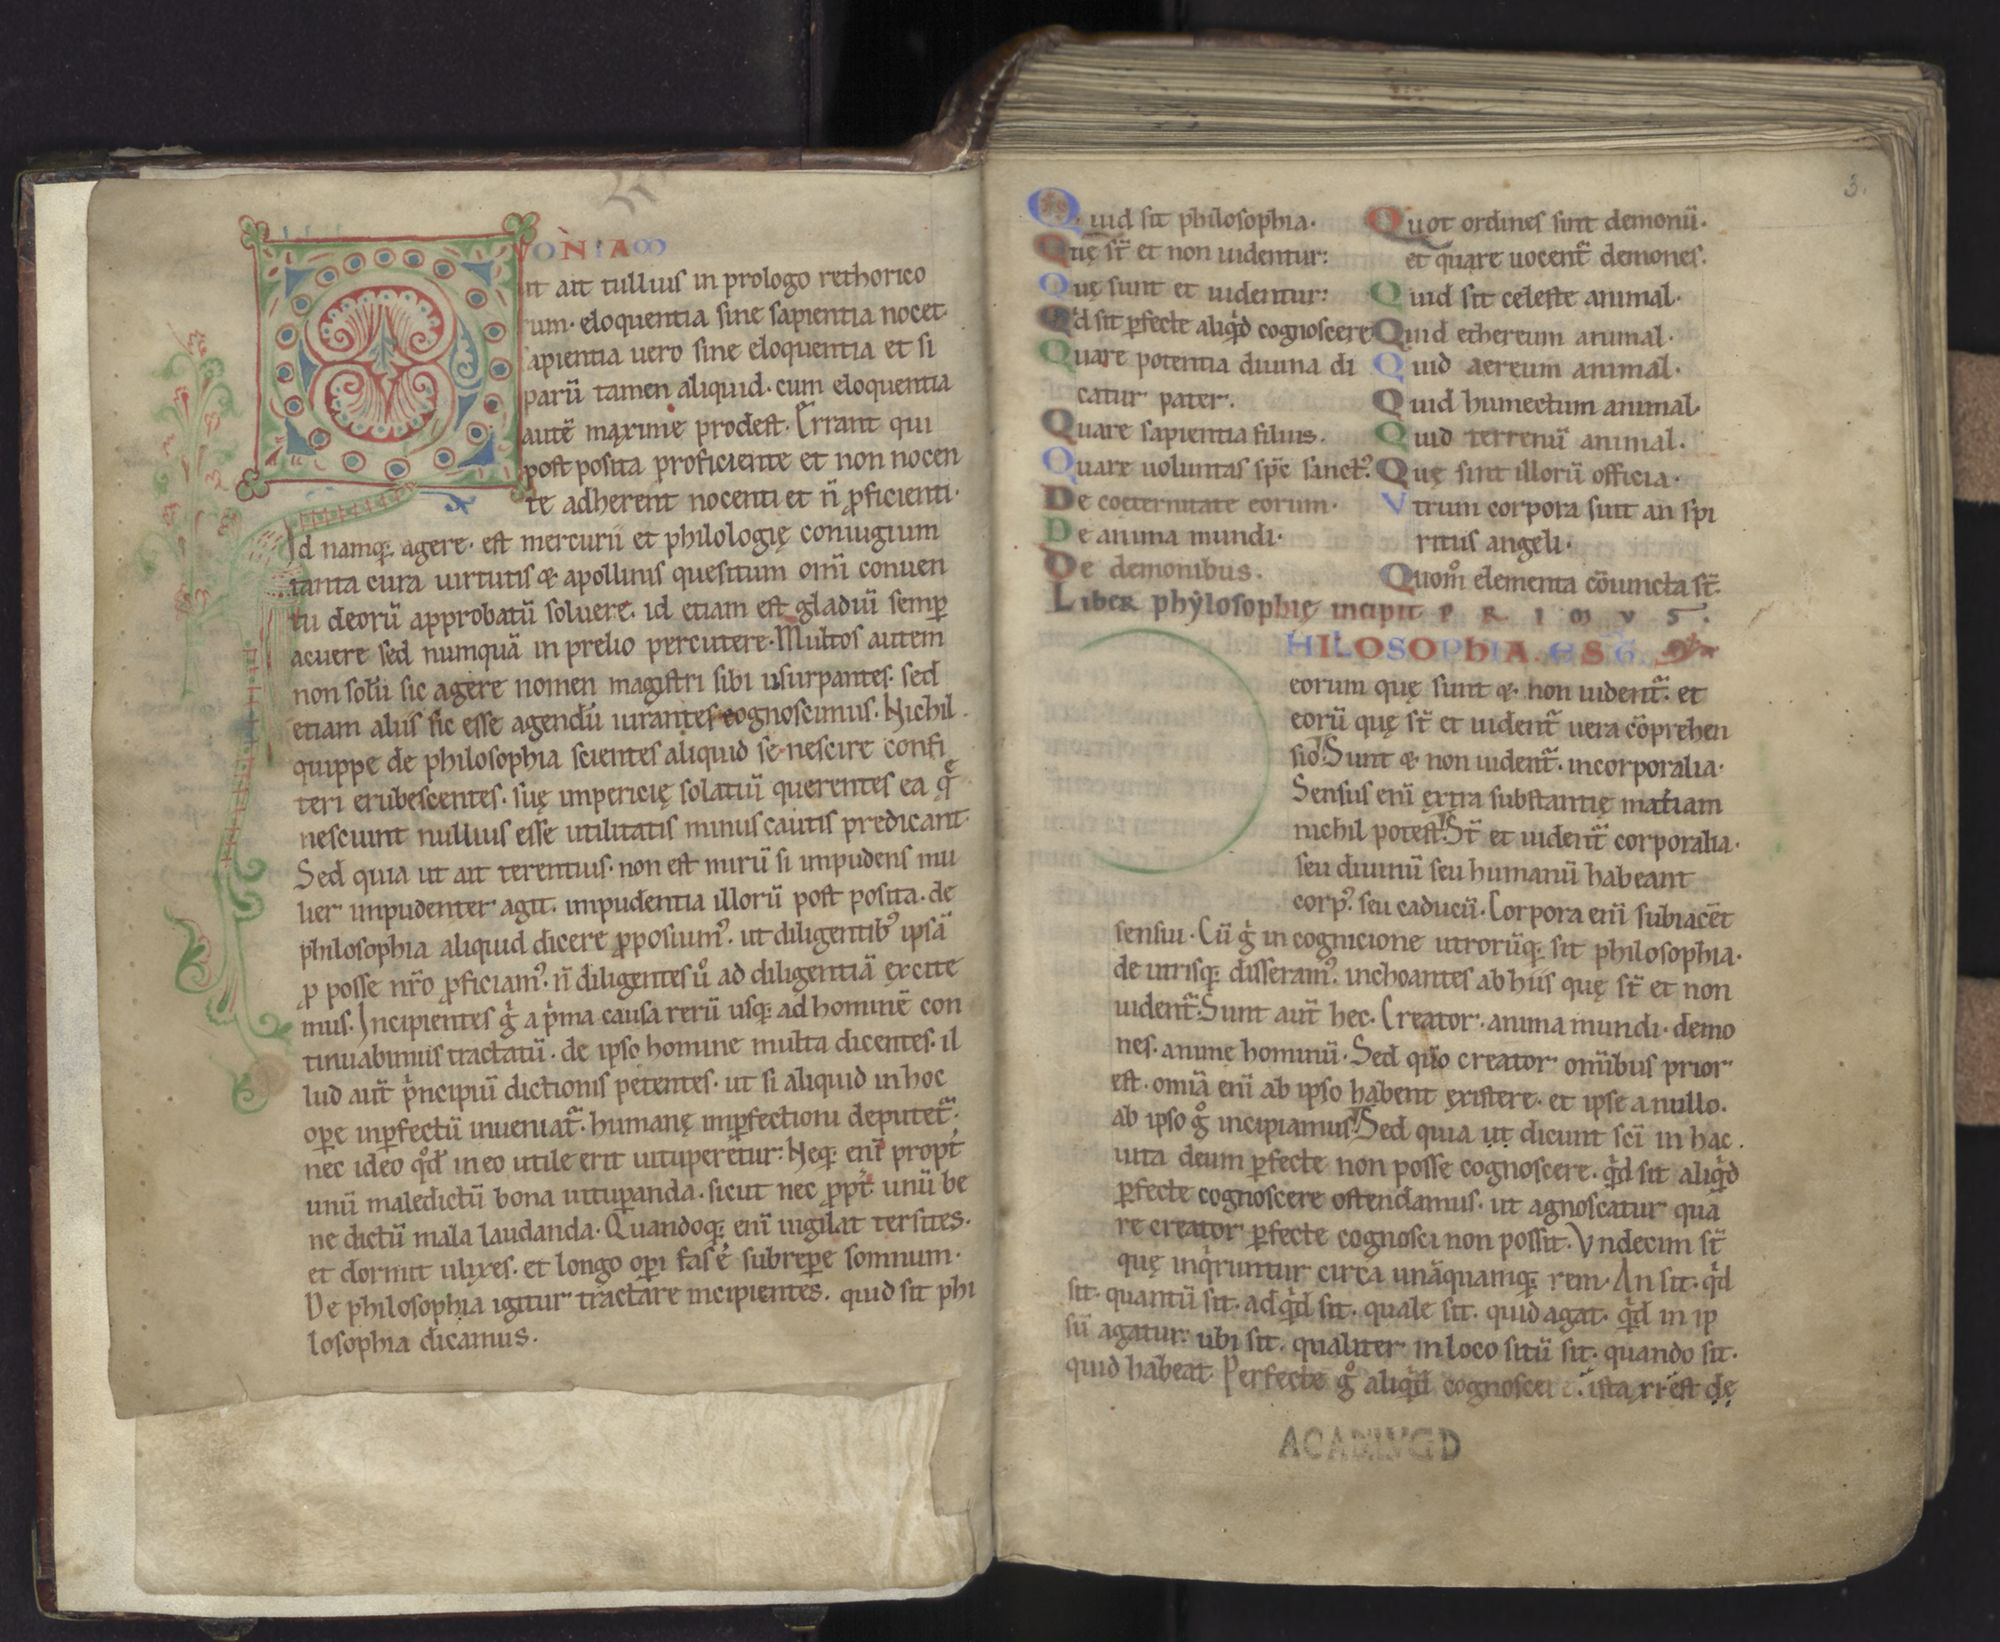 QUONIAM
ut ait tullius in prologo rethorico
rum· eloquentia sine sapientia nocet·
sapientia uero sine eloquentia et si
parū tamen aliquid· cum eloquentia
autē maxime prodest· Errant qui
post posita proficiente et non nocen
te adherent nocenti et ñ ꝓficienti·
Id namq; agere· est mercurii et philologię coniugium
tanta cura uirtutis & apollinis quesitum omī conuen
tu deorū approbatū soluere· id etiam est gladiū semꝑ
acuere sed numquā in prelio percutere· Multos autem
non solū sic agere nomen magistri sibi usurpantes· sed
etiam aliis sic esse agendū iurantes cognoscimus· Nichil
quippe de philosophia scientes aliquid se nescire confi
teri erubescentes· suę impericię solatiū querentes ea q̄
nesciunt nullius esse utilitatis minus cautis predicant·
Sed quia ut ait terentius· non est mirū si impudens mu
lier impudenter agit· impudentia illorū post posita· de
philosophia aliquid dicere ꝓposuim᾿· ut diligentib᾿ ipsā
ꝓ posse nr̄o ꝓficiam᾿· ñ diligentes u° ad diligentiā excite
mus· Incipientes gͥ a pͥma causa rerū usq; ad hominē con
tinuabimus tractatū· de ipso homine multa dicentes· il
lud aut̄ pͥncipiū dictionis petentes· ut si aliquid in hoc
oꝑe inꝑfectū inueniat᷑· humanę inꝑfectioni deputet᷑·
nec ideo qd̊ in eo utile erit uituperetur: Neq; eni᷑ propt̄
unū maledictū bona uituꝑanda· sicut nec ꝓpt̄ unū be
ne dictū mala laudanda· Quandoq; enī uigilat tersites·
et dormit ulixes· et longo oꝑi fas ē subreꝑe somnum·
De philosophia igitur tractare incipientes· quid sit phi
losophia dicamus·
3.
Quid sit philosophia·
Quę st̄ et non uidentur:
Quę sunt et uidentur:
Qͥd sit ꝑfecte aliqͥd cognoscere
Quare potentia diuina di
catur pater·
Quare sapientia filius·
Quare uoluntas sp̄c sanct᾿·
De coeternitate eorum·
De anima mundi·
De demonibus·
Quot ordines sint demonū·
et quare uocent᷑ demones·
Quid sit celeste animal·
Quid ethereum animal·
Quid aereum animal·
Quid humectum animal·
Quid terrenū animal·
Quę sint illorū officia·
Vtrum corpora sint an spi
ritus angeli·
Quom° elementa cōiuncta st̄·
Liber phylosophię incipit PRIMUS·
HILOSOPHIA·EST
eorum quę sunt & non uident᷑· et
eorū quę st̄ et uident᷑ uera cōprehen
sio· Sunt & non uident᷑· incorporalia·
Sensus enī extra substantię mat̄iam
nichil potest· St̄ et uident᷑ corporalia·
seu diuinū seu humanū habeant
corp᾿· seu caducū· Corpora enī subiacēt
sensui· Cū gͥ in cognicione utrorūq; sit philosophia·
de utrisq; disseram᾿· inchoantes ab hiis quę st̄ et non
uident᷑· Sunt aut̄ hec· Creator· anima mundi· demo
nes· anime hominū· Sed qu°o creator om̄ibus prior
est· omīa enī ab ipso habent existere· et ipse a nullo·
ab ipso g° incipiamus· Sed quia ut dicunt sc̄i in hac
uita deum ꝑfecte non posse cognoscere· qͥd sit aliqͥd
ꝑfecte cognoscere ostendamus· ut agnoscatur qua
re creator ꝑfecte cognosci non possit· Vndecim st̄
quę inqͥruntur circa unāquamq; rem· An sit· qͥd
sit· quantū sit· ad qͥd sit· quale sit· quid agat· qͥd in ip
sū agatur· ubi sit· qualiter in loco sitū sit· quando sit·
quid habeat· Perfecte g° aliqͥd cognoscere· ista xi est de
ACAD·LVGD